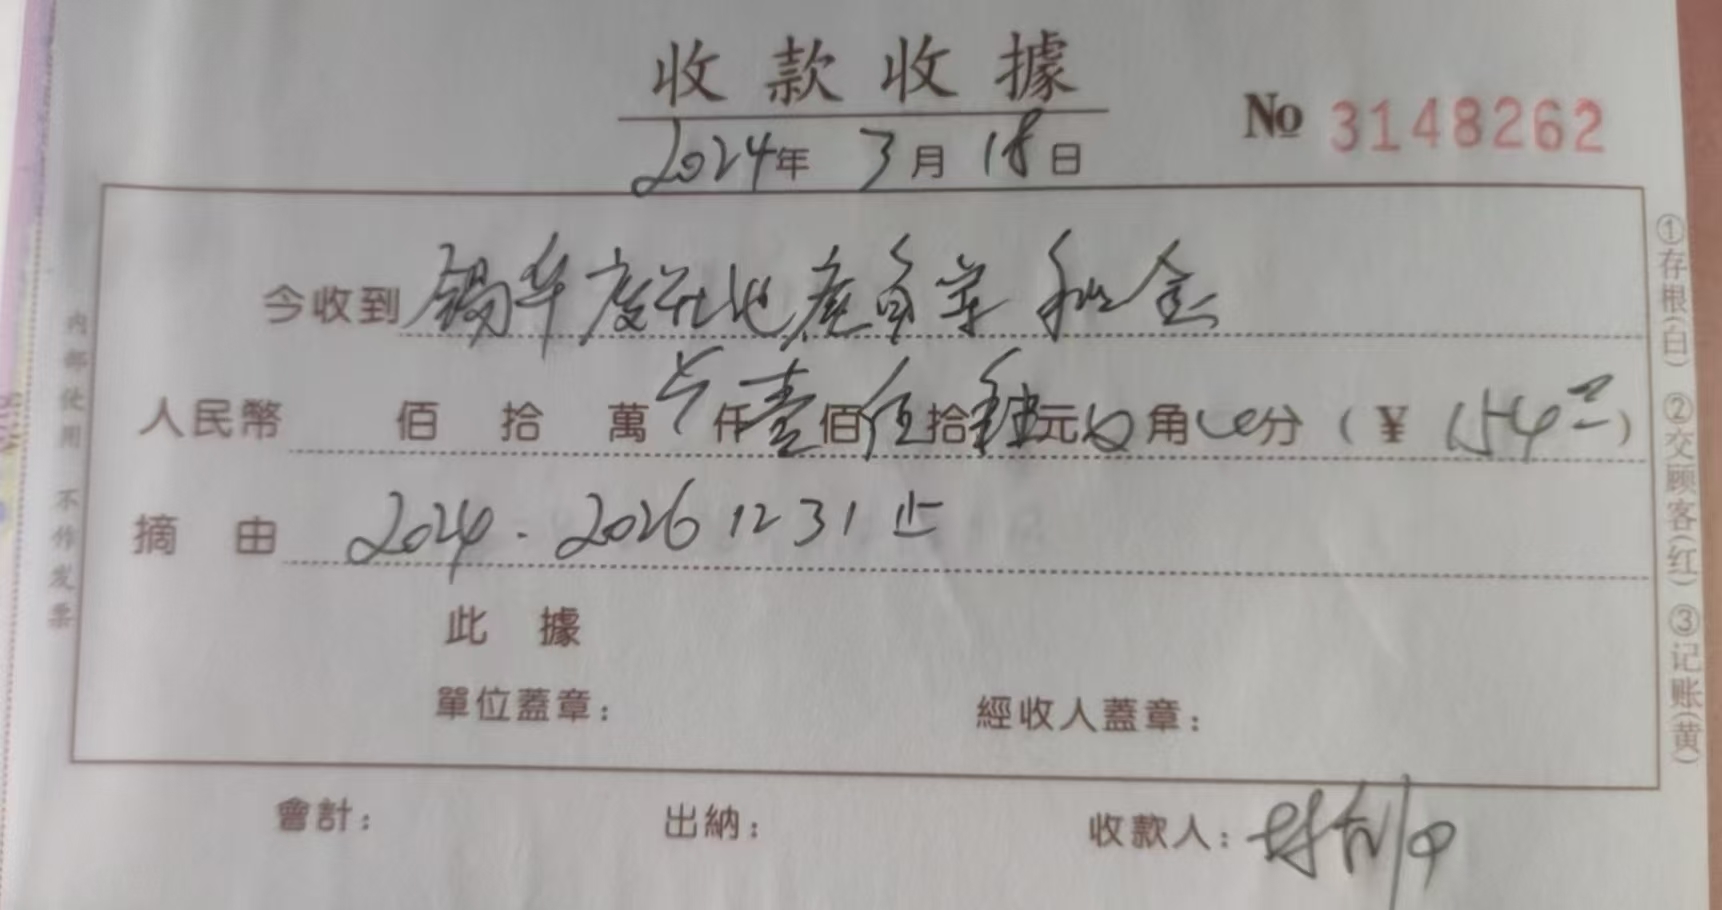 收款收據
No 3148262
2024年 3月 18日
今收到 租金
人民幣 佰 拾 萬 仟壹佰伍拾肆元 角 分 (¥ 154
摘 由 2024. 2026 12 31 止
此 據
單位蓋章：
經收人蓋章：
會計：
出納：
收款人：
内部使用 不作发票
①存根(白) ②交顾客(红) ③记账(黄)